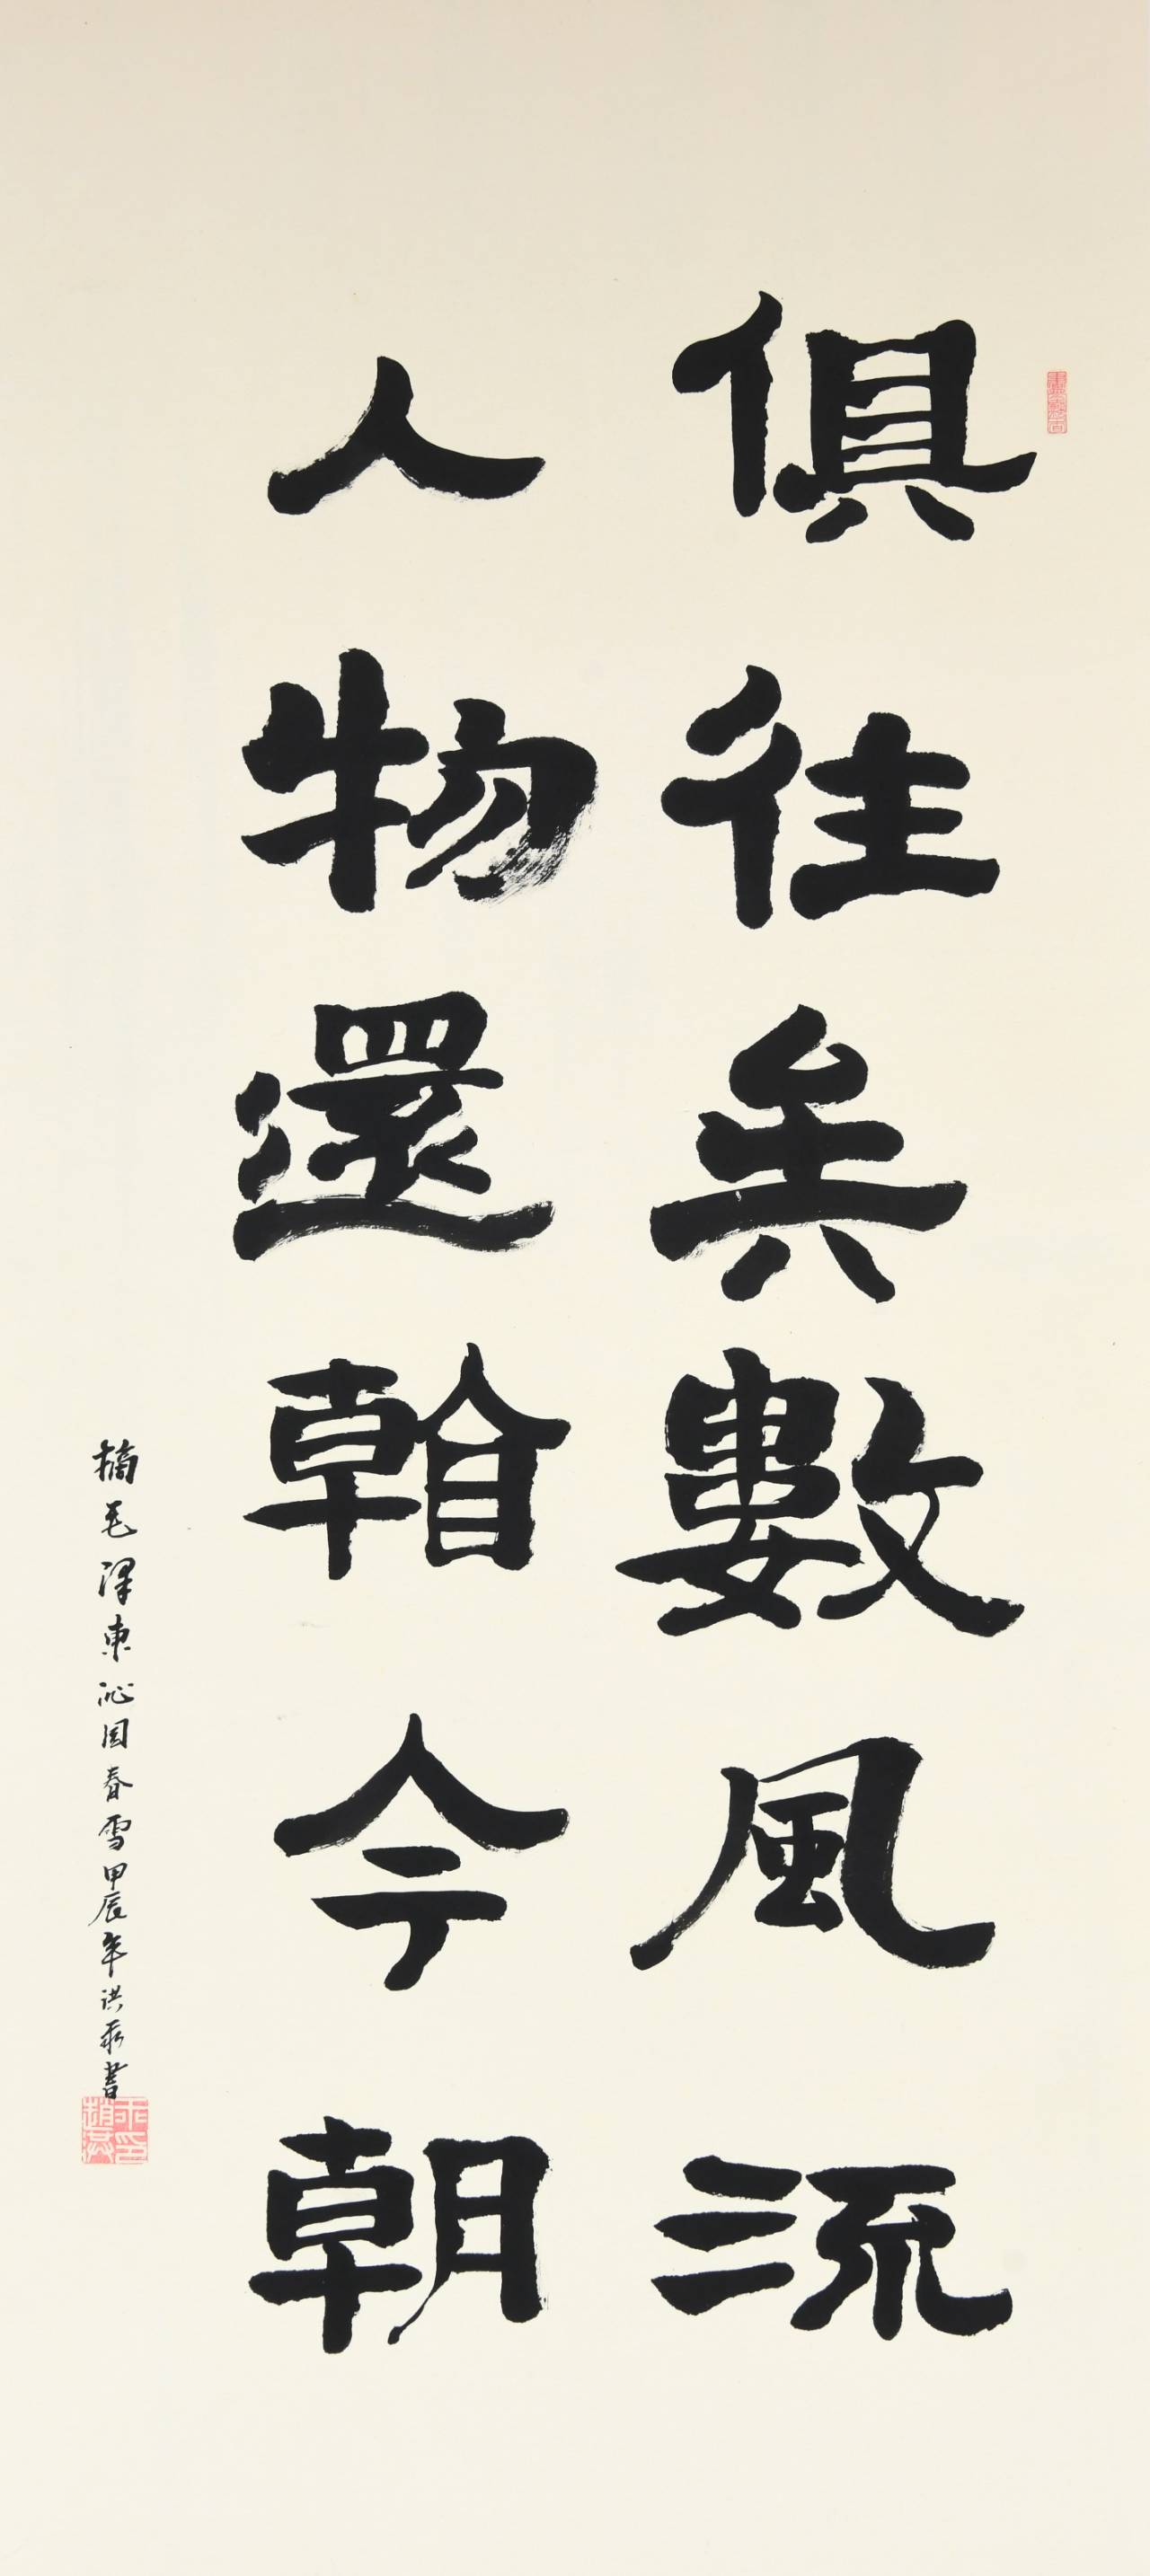 俱往矣數風流
人物還看今朝
摘毛澤東沁园春雪甲辰年洪書